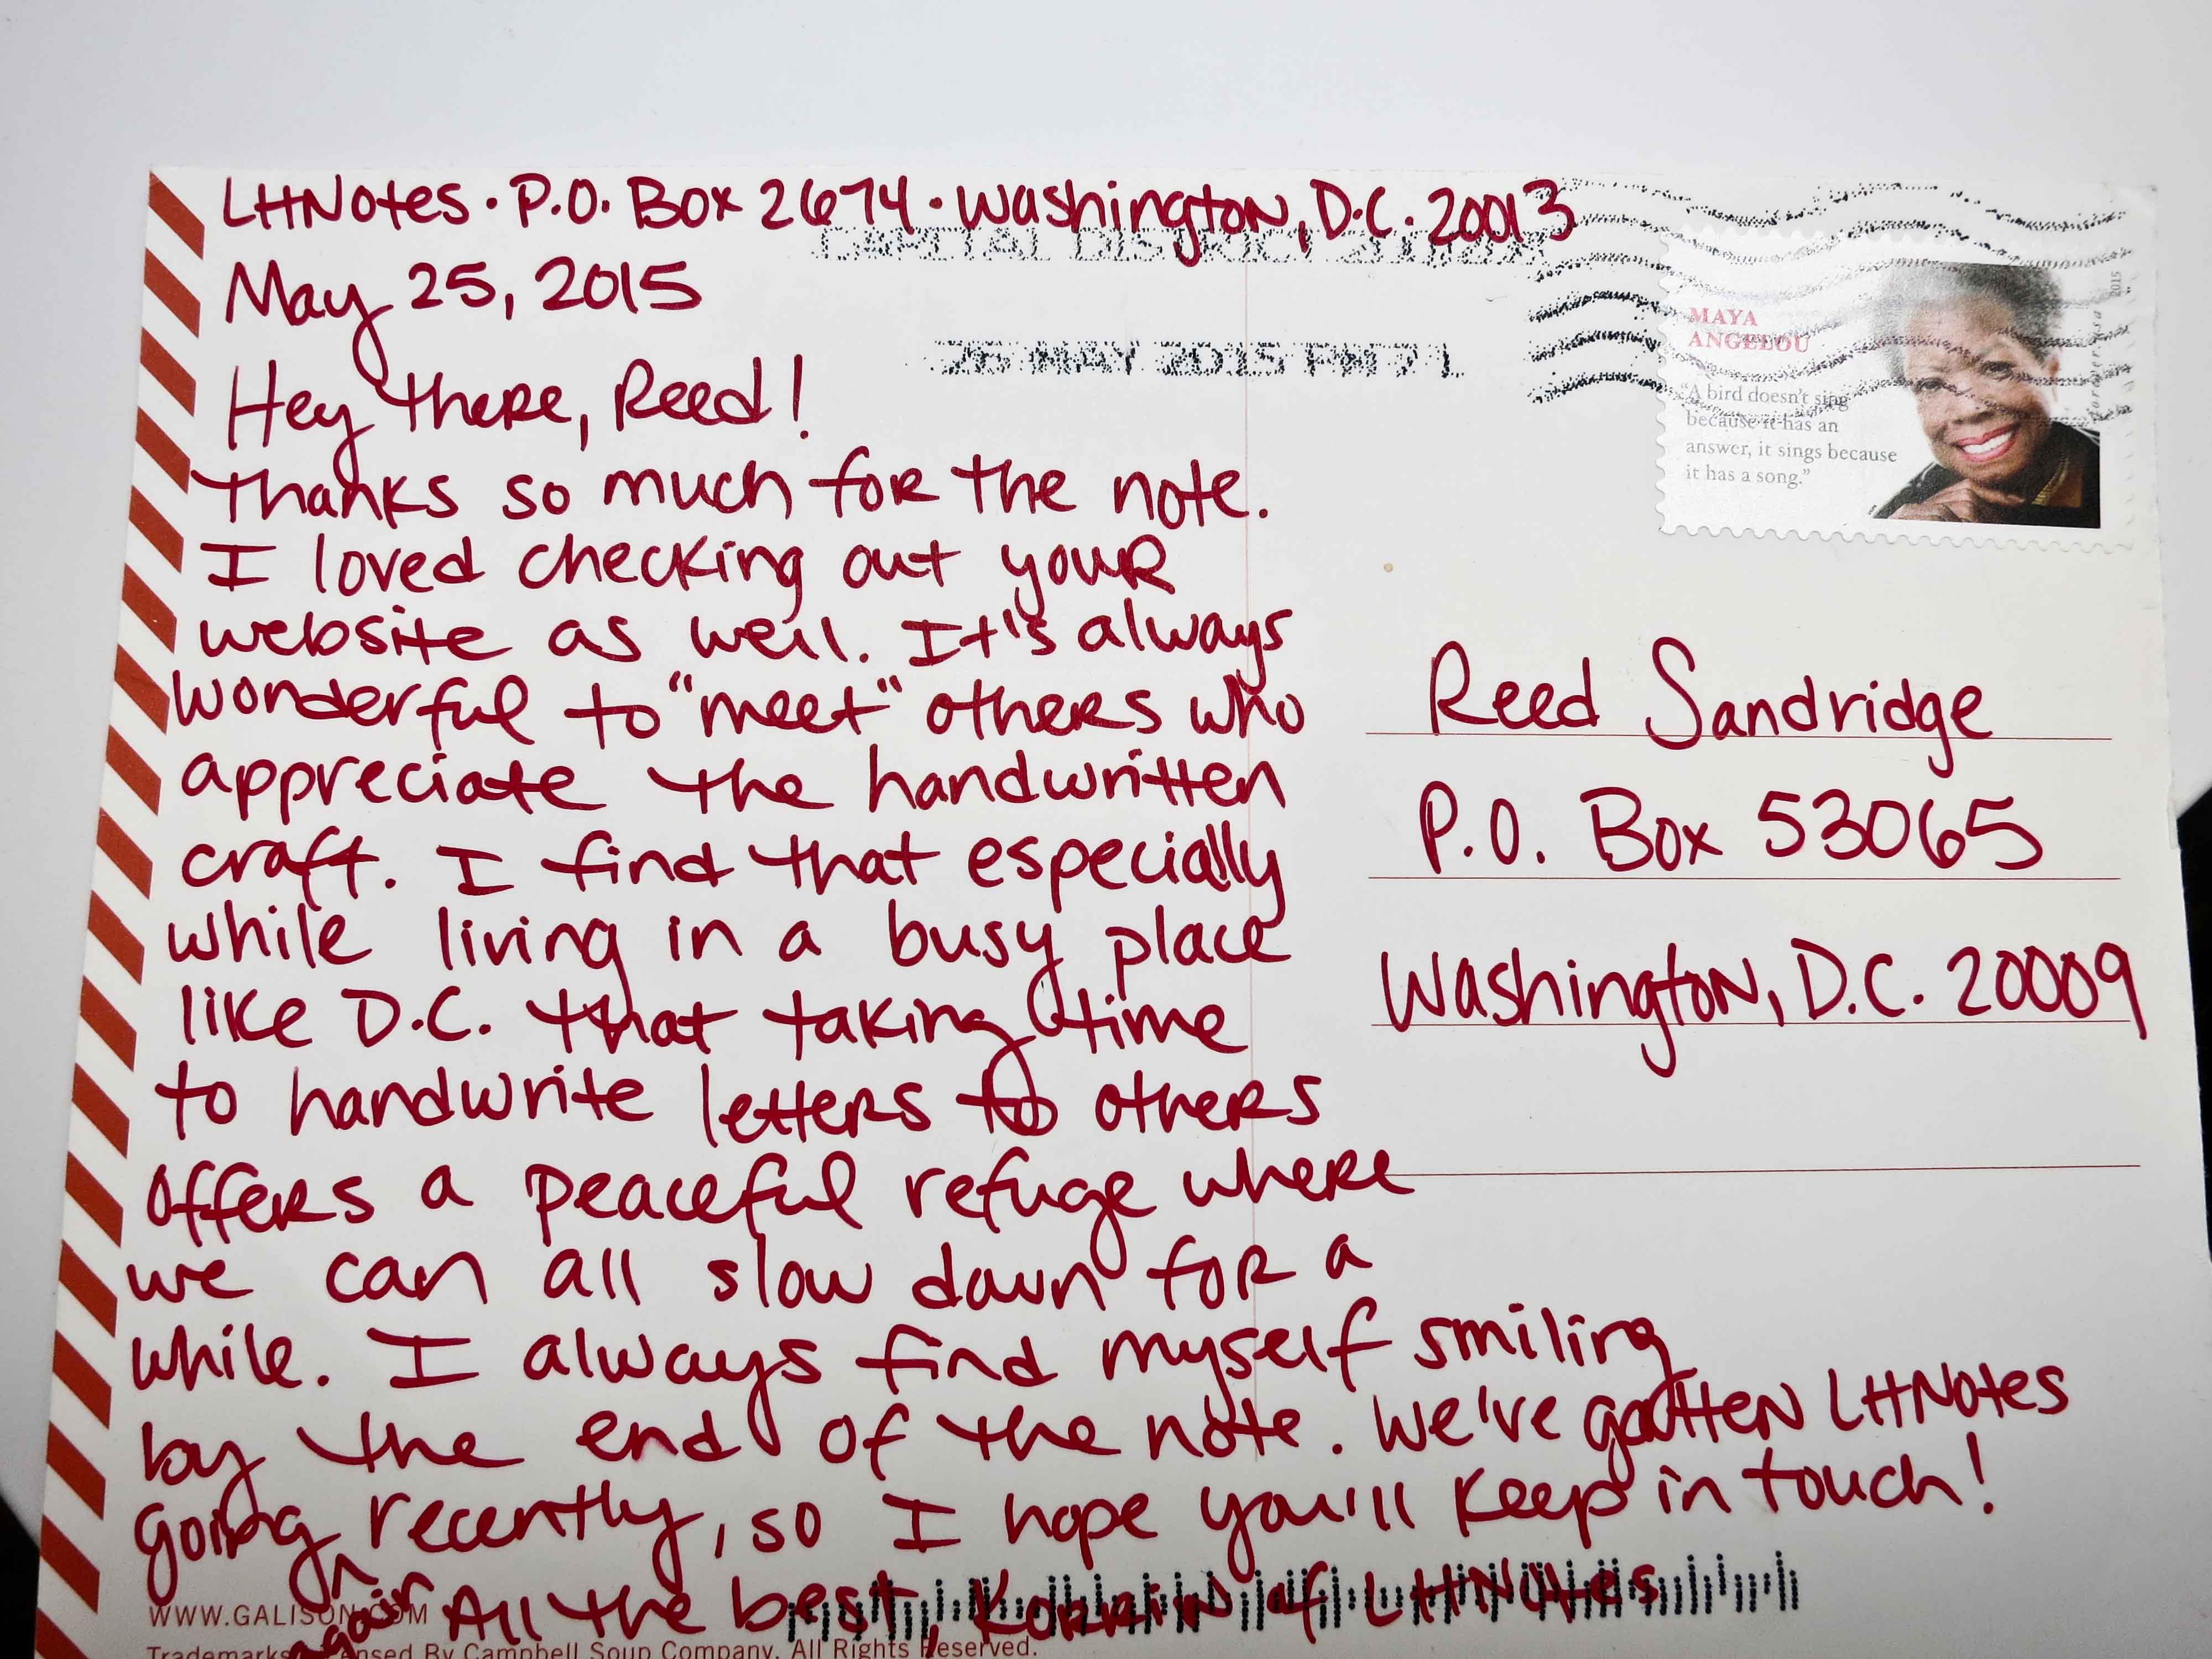 LHNotes · P.O. Box 2674 · Washington, D.C. 20013
CAPITAL DISTRICT
May 25, 2015
26 MAY 2015 PM 7 L
MAYA
ANGELOU
"A bird doesn't sing
because it has an
answer, it sings because
it has a song."
forever usa 2015
Hey there, Reed!
Thanks so much for the note.
I loved checking out your
website as well. It's always
wonderful to "meet" others who
appreciate the handwritten
craft. I find that especially
while living in a busy place
like D.C. that taking time
to handwrite letters to others
offers a peaceful refuge where
we can all slow down for a
while. I always find myself smiling
by the end of the note. We've gotten LHNotes
going ^ recently, so I hope you'll keep in touch!
again
All the best, Korrin of LHNotes
Reed Sandridge
P.O. Box 53065
Washington, D.C. 20009
WWW.GALISON.COM
Trademarks Licensed By Campbell Soup Company. All Rights Reserved.